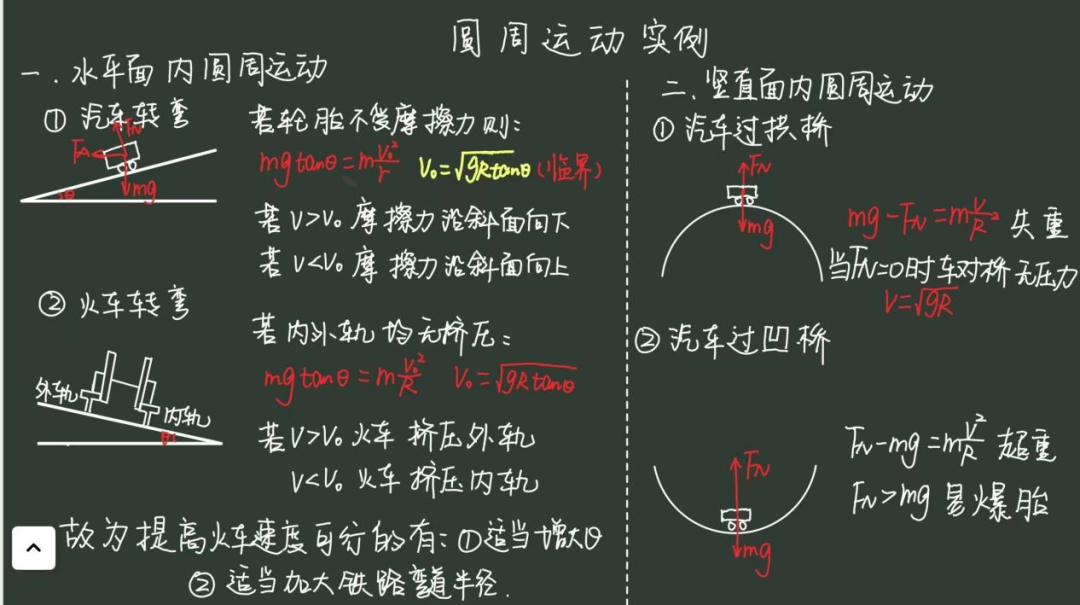 圆周运动实例
一.水平面内圆周运动
① 汽车转弯
FN
F合
mg
θ
若轮胎不受摩擦力则:
mgtanθ=mv₀²/r V₀=√gRtanθ(临界)
若V>V₀摩擦力沿斜面向下
若V<V₀摩擦力沿斜面向上
② 火车转弯
外轨
内轨
θ
若内外轨均无挤压:
mgtanθ=mv₀²/R V₀=√gRtanθ
若V>V₀火车挤压外轨
V<V₀火车挤压内轨
故为提高火车速度可行的有:①适当增大θ
②适当加大铁路弯道半径.
二.竖直面内圆周运动
① 汽车过拱桥
FN
mg
mg-FN=mv²/R 失重
当FN=0时车对桥无压力
V=√gR
② 汽车过凹桥
FN
mg
FN-mg=mv²/R 超重
FN>mg 易爆胎